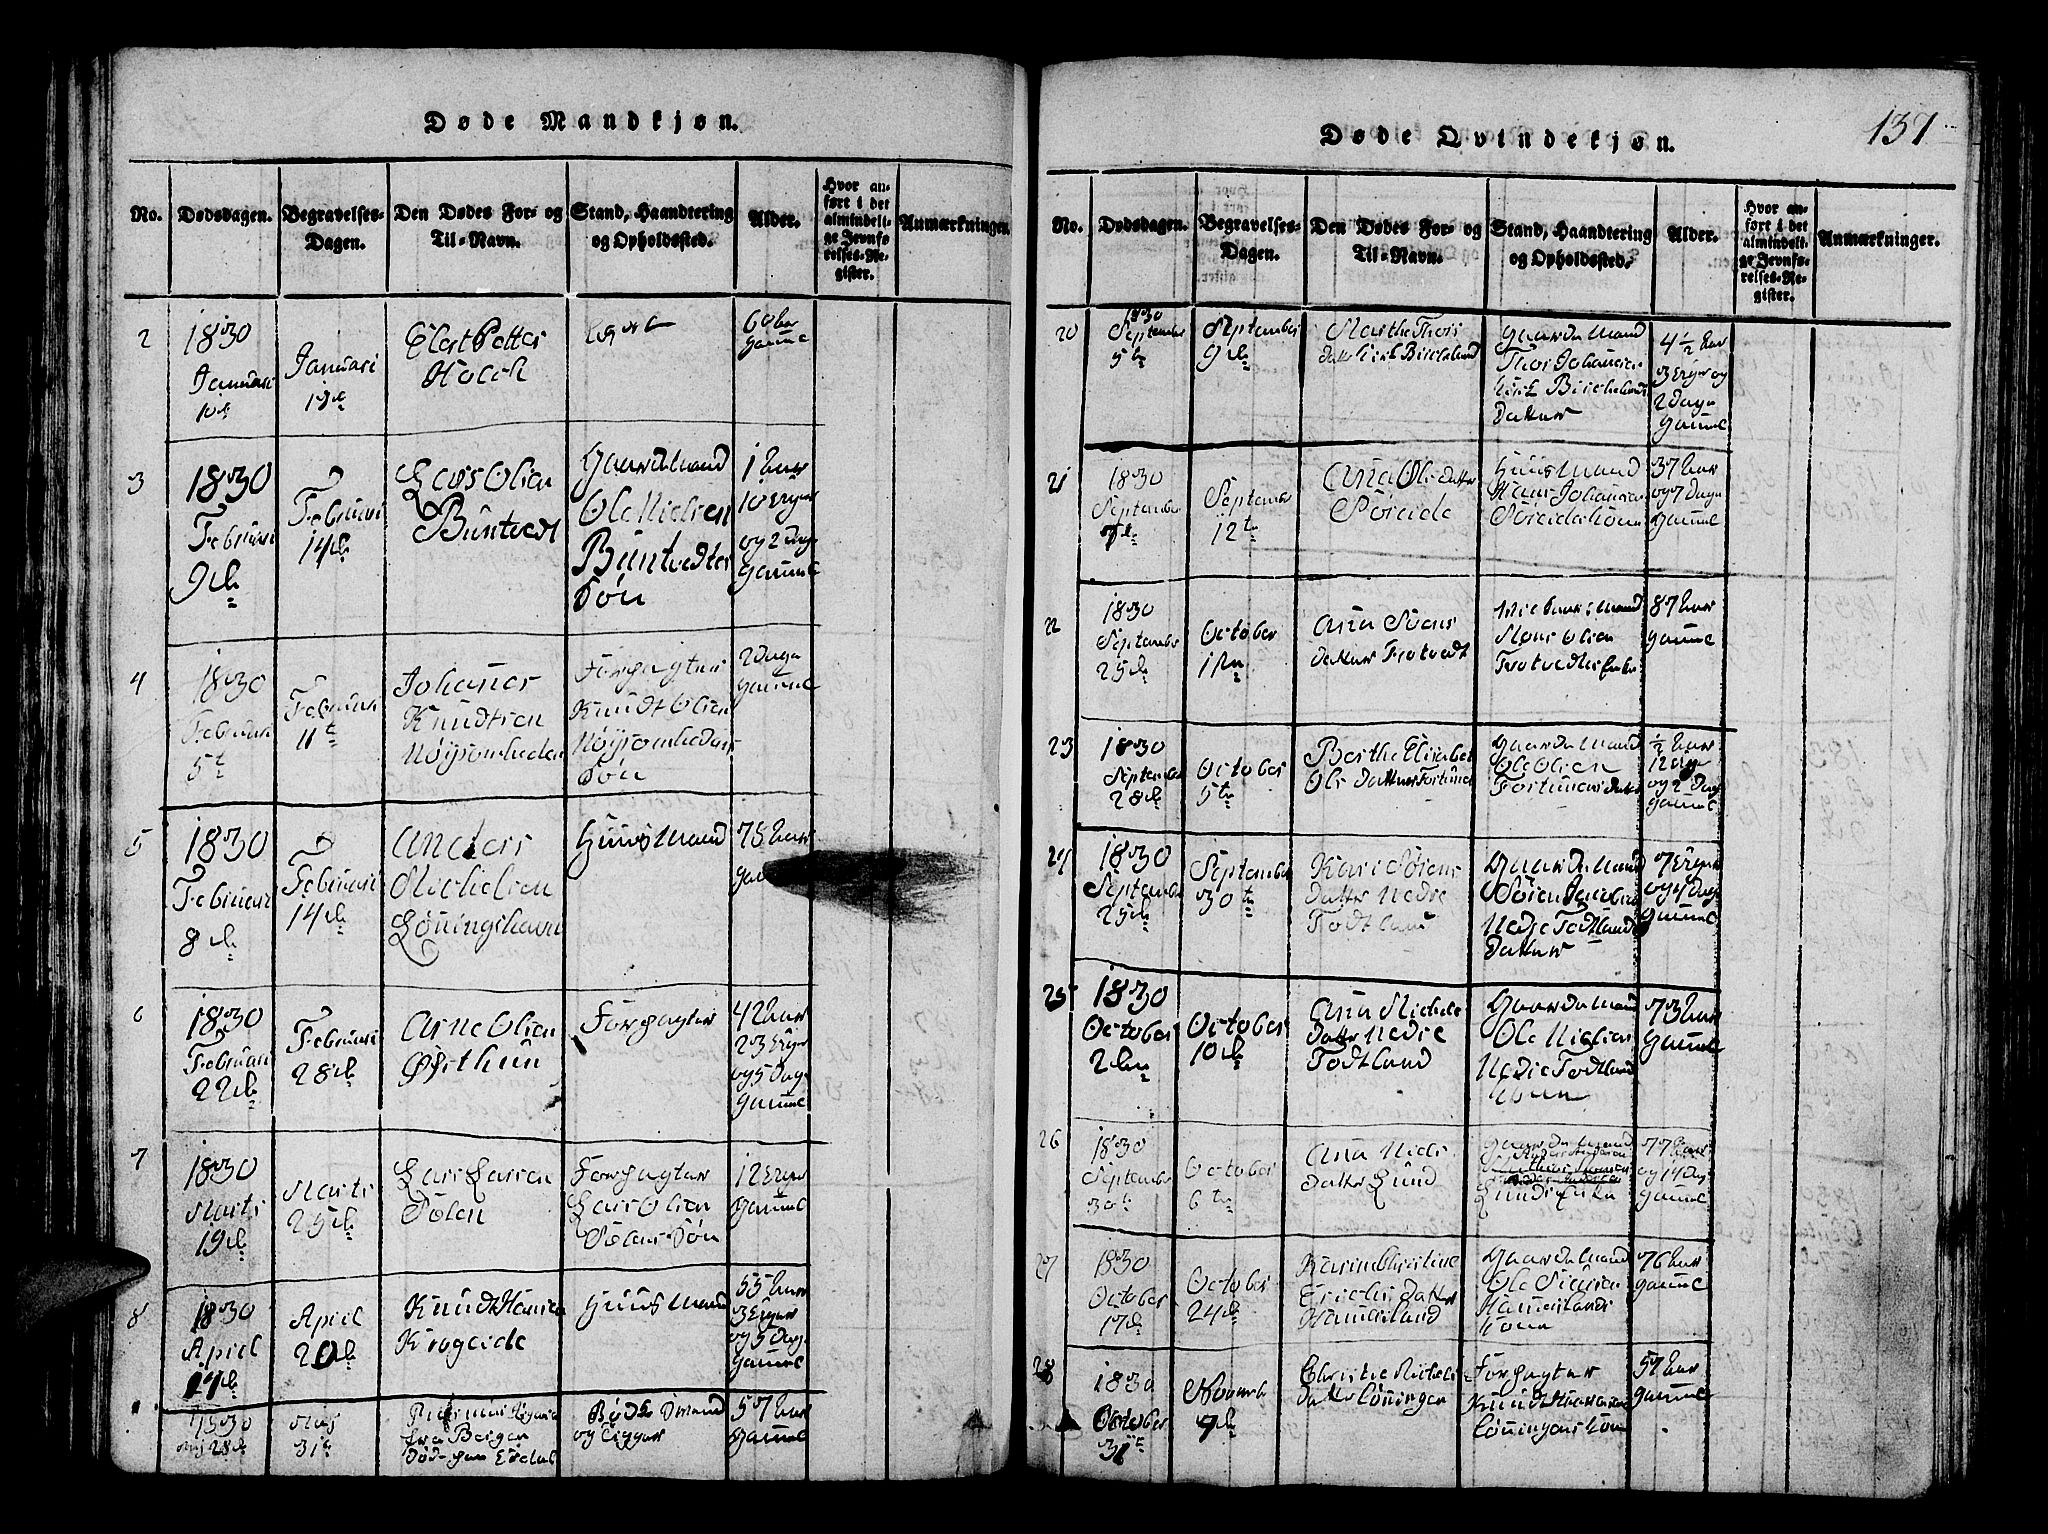 Døde Mandkjøn.
No.
Dødsdagen.
Begravelses-
Dagen.
Den Dødes For- og
Til-Navn.
Stand, Haandtering
og Opholdssted.
Alder.
Hvor an-
ført i det
almindeli-
ge Jevnfø-
relses-Re-
gister.
Anmærkninger.
2
1830
Januari
10de
Januari
19de
Petter
Holch
60 aar
gamel
3
1830
Februari
9de
Februari
14de
Lars Olsen
Buntvedt
Gaardemand
Ole Nielsen
Buntvedts
Søn
1 Aar
10
og 2 Dage
gamel
4
1830
Februari
5te
Februari
11te
Johanes
Knudtsen
Forpagter
Knudt Olsen
Søn
2 Dage
gamel
5
1830
Februari
8de
Februari
14de
Anders
Michelsen
Løningshavn
Huusmand
78 Aar
6
1830
Februari
22de
Februari
28de
Arne Olsen
Østhun
Forpagter
42 Aar
23
og 5 Dage
gamel
7
1830
Marti
19de
Marti
25de
Lars Larsen
Solen
Forpagter
Lars Olsen
Søn
12
gamel
8
1830
April
17de
April
20de
Knudt Hansen
Krogeide
Huusmand
55 Aar
3
og 5 Dage
gamel
1830
28de
May
31te
fra Bergen
og
57 Aar
gamel
Døde Qvindekjøn.
137
No.
Dødsdagen.
Begravelses-
Dagen.
Den Dødes For- og
Til-Navn.
Stand, Haandtering
og Opholdssted.
Alder.
Hvor an-
ført i det
almindeli-
ge Jevnfø-
relses-Re-
gister.
Anmærkninger.
20
1830
September
5te
September
9de
Marthe Thors
Datter Birkeland
Gaardemand
Thor Johansen
Birkelands
Datter
4 1/2 Aar
3 og
2 Dage
gamel
21
1830
September
7de
September
12te
Ana Ols Datter
Søreide
Huusmand
Hans Johansen
Søreide kone
37 Aar
og 7 Dage
gamel
22
1830
September
25de
October
Ana
Datter Trotvedt
Mons Olsen
Trotvedts Enke
87 Aar
gamel
23
1830
September
28de
October
5te
Berthe Elisabet
Ols Datter Fortun
Gaardemand
Ole Olsen
Fortuns Datter
1/2 Aar
og 2 Dage
gamel
24
1830
September
25de
September
30te
Kari Sørens
Datter Nedre
Todtland
Gaardemand
Søren
Nedre Todtlands
Datter
7
og 4 Dage
gamel
25
1830
October
2den
October
10de
Ana Michels
Datter Nedre
Todtland
Gaardemand
Ole Nielsen
Nedre Todtland
kone
73 Aar
gamel
26
1830
September
30te
October
6te
Ana Niels
Datter Lund
Gaardemand
Lunds Enke
77 Aar
og 14 Dage
gamel
27
1830
October
17de
October
24de
Karen Christine
Erichs Datter
Hamersland
Gaardemand
Ole
Hamerslands
kone
76 Aar
gamel
28
1830
October
31te
November
7de
Christie Michels
Datter Løningen
Forpagter
Knudt
Løningens kone
57 Aar
gamel